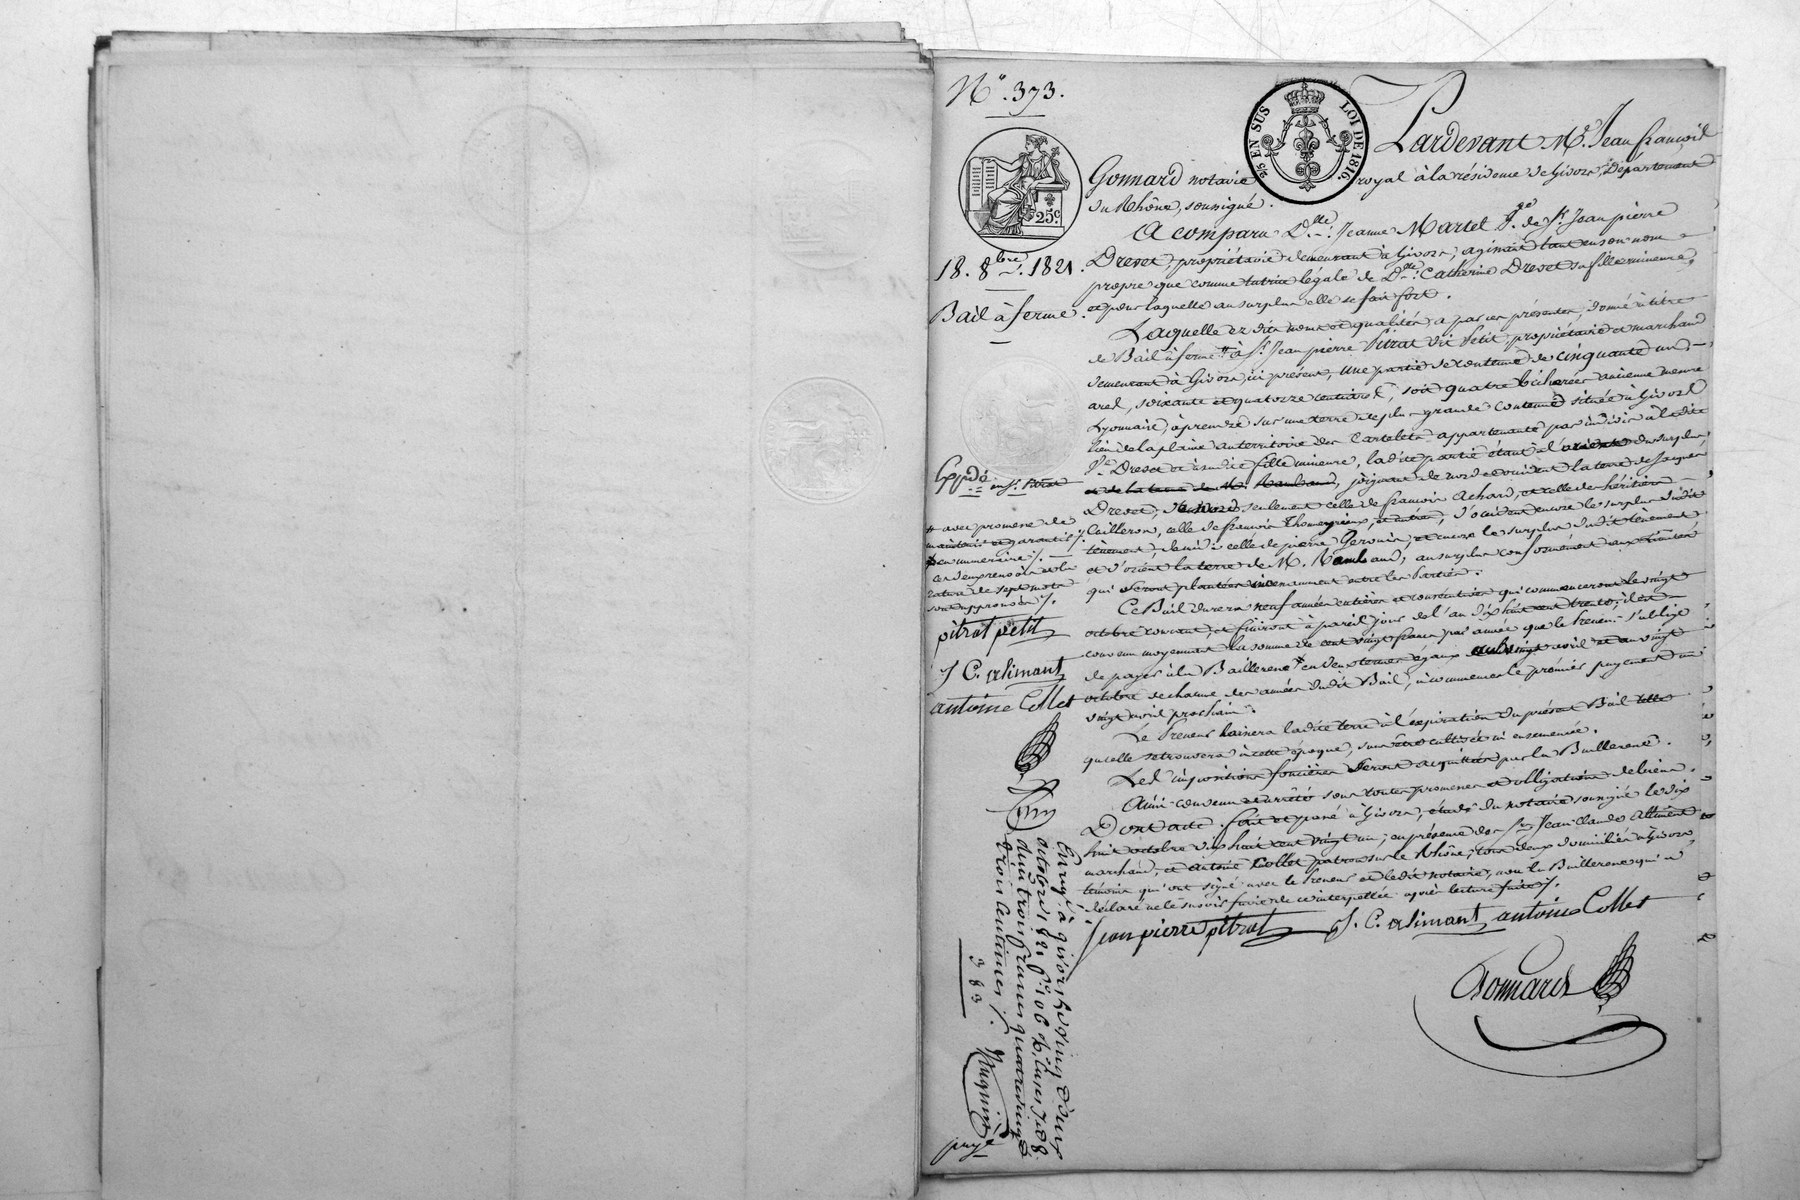 N° 373.
25 c.
2/5 EN SUS LOI DE 1816.
18. 8bre 1821.
Bail à ferme.
Pardevant Me Jean françois
Gonnard notaire royal à la résidence de Givors, Département
du Rhône, soussigné.
A comparu Dlle Jeanne Martel Vve de Sr Jean pierre
Drevet, propriétaire demeurant à Givors, agissant tant en son nom
propre que comme tutrice légale de Dlle Catherine Drevet sa fille mineure,
et pour laquelle au surplus elle se fait fort.
Laquelle ez dits noms et qualités a par ces présentes, donné à titre
de Bail à ferme # à Sr Jean pierre Pitrat dit Petit, propriétaire et marchand
demeurant à Givors, ici présent, une partie de contenue de cinquante un
ares, soixante et quatorze centiares, soit quatre bicherées ancienne mesure
Lyonnaise, à prendre sur une terre de plus grande contenue située à Givors
lieu de la plaine au territoire des Cartelets appartenante par indivis à la dite
Ve Drevet et à sa dite fille mineure, ladite partie étant à l'orient du surplus,
et de la terre de M. Rambaud, joignant de nord et occident la terre de Jacques
Drevet, de nord seulement celle de françois Achard, et celle des héritiers
Cailleron, celle de françois Thomeyrieux, et autres, d'occident encore le surplus dudit
tènement, de midi celle de pierre Gervais, et encore le surplus dudit tènement
et d'orient la terre de M. Rambaud, au surplus conformément aux limites
qui seront plantées incessamment entre les parties.
Ce Bail durera neuf années entières et consécutives qui commenceront le vingt
octobre courant, et finiront à pareil jour de l'an dix huit cent trente, il est
convenu moyennant la somme de cent vingt francs par année que le Preneur s'oblige
de payer à la Bailleresse en deux termes égaux au vingt avril et au vingt
octobre de chacune des années dudit Bail, à commencer le premier payement au
vingt avril prochain.
Le Preneur laissera ladite terre à l'expiration du présent Bail telle
qu'elle se trouvera à cette époque, sans être cultivée ni ensemencée.
Les impositions foncières seront acquittées par la Bailleresse.
Ainsi convenu et arrêté sous toutes promesses et obligations de biens.
Dont acte. fait et passé à Givors, étude du notaire soussigné le dix
huit octobre dix huit cent vingt un, en présence des Srs Jean Claude Allimant
marchand, et antoine Collet patron sur le Rhône, tous deux domiciliés à Givors,
témoins qui ont signé avec le Preneur et ledit notaire, non la Bailleresse qui a
déclaré ne le savoir faire de ce interpellée après lecture faite /.
Jean pierre pitrat J. C. alimant antoine Collet
Gonnard
Expédié
au Sr Pitrat
# avec promesse de
maintenir et garantir /.
en numéraire /.
pitrat petit
J C. alimant
antoine Collet
Enregé à givors le vingt deux
octobre 1821 fo 106
du m trois francs quatre vingt
trois centimes /.
3 83